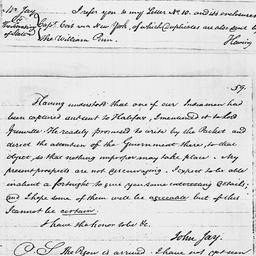 Mr. Jay
to
Secretary
of State
I refer you to my Letter No. 10. and its enclosures
Capt. Cost via New York, of which Duplicates are also sent by
The William Penn.
Having
59.
Having understood that one of our Indiamen had
been captured and sent to Halifax, I mentioned it to Lord
Grenville. He readily promised to write by the Packet and
direct the attention of the Government there, to that
object, so that nothing improper may take place. My
present prospects are not discouraging. I expect to be able
in about a fortnight to give you some interesting details;
and I hope some of them will be agreeable but of this
I cannot be certain.
I have the honor to be &c.
John Jay.
P.S. The Pigon is arrived. I have not yet seen